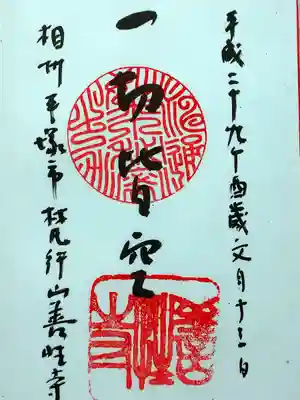 平成二十九年酉歳文月十三日
一切皆空
相州平塚市梵行山善性寺